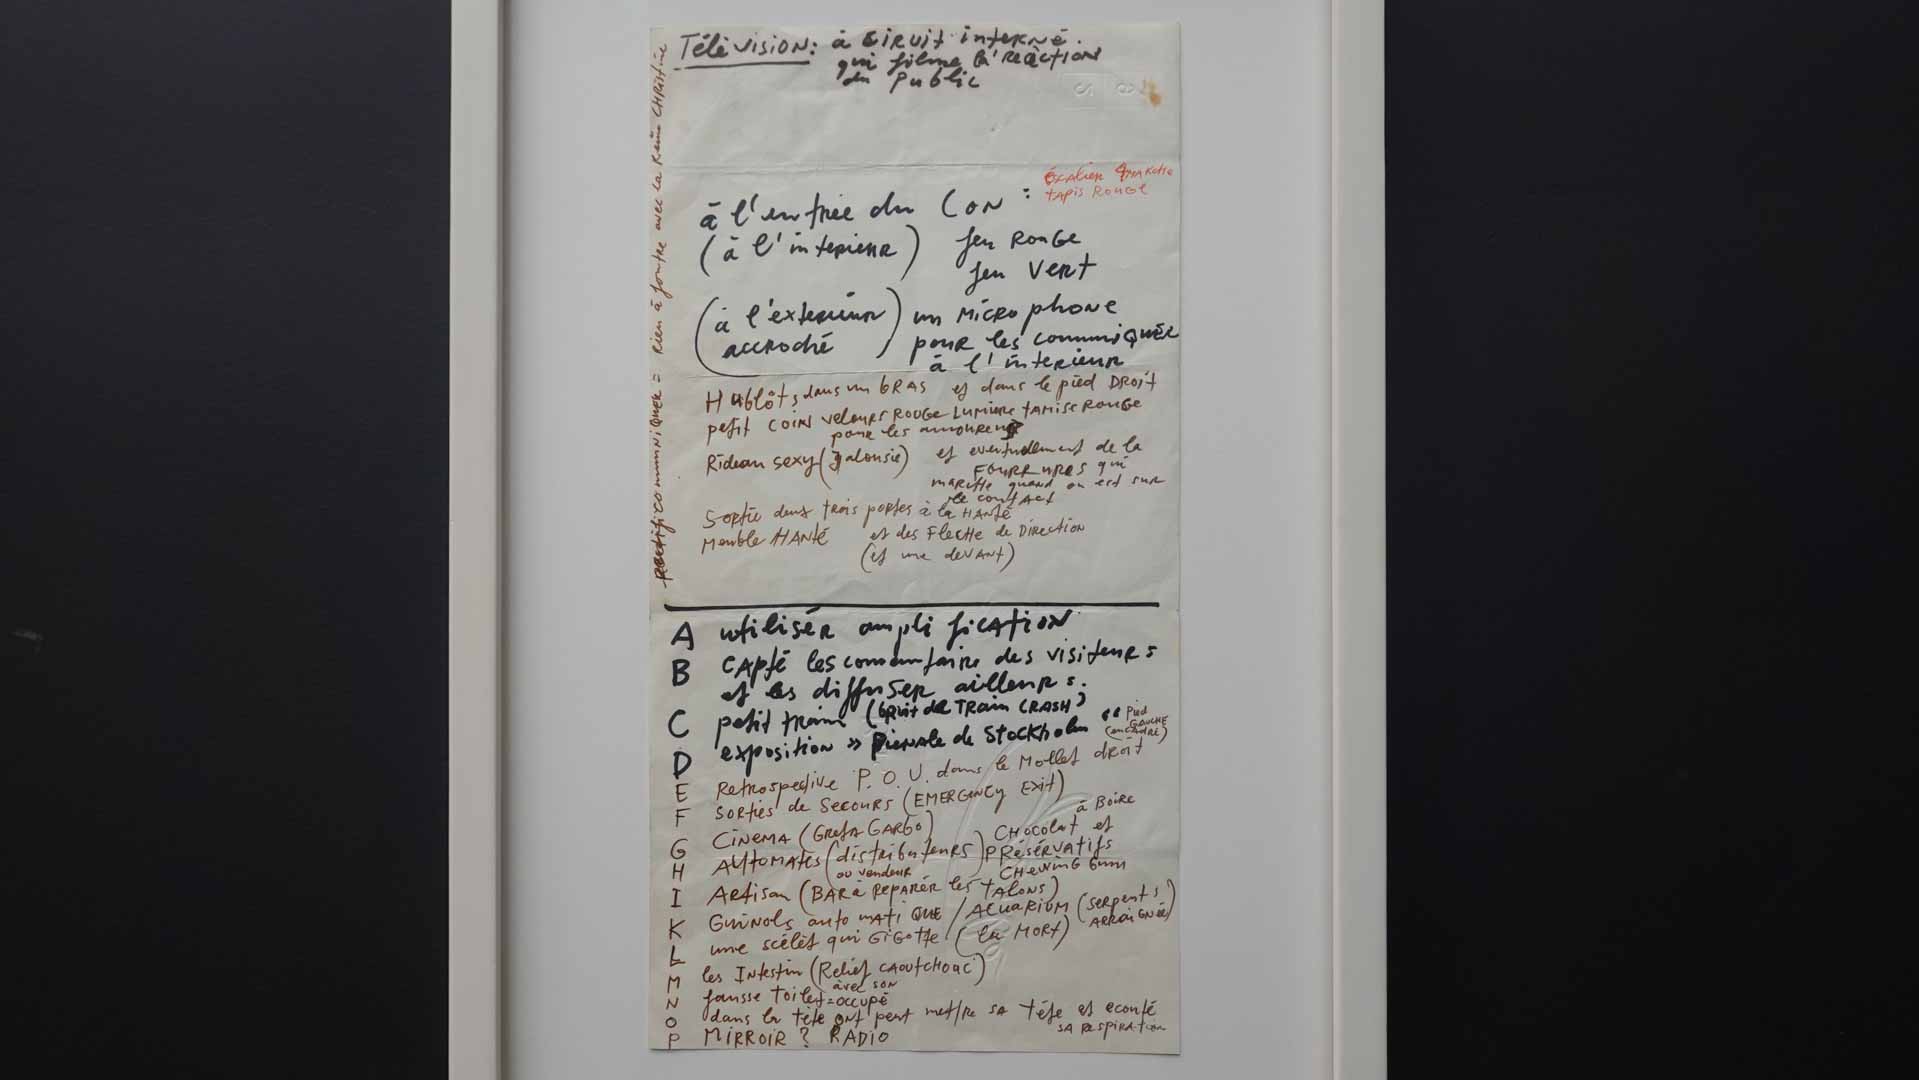 Télévision: à Siruit interné.
qui filme la réaction
du Public
éxalien
tapis ROUGE
à l'entrée du CON :
(à l'interieur) feu ROUGE
feu Vert
(à l'exterieur) un MICROphone
accroché pour les communiQuér
à l'interieur
Hublôts dans un bRAS et dans le pied DROIT
petit COIN velours ROUGE LUMIERE tAMISE ROUGE
pour les amoureux
Rideau sexy (jalousie) et eventuelement de la
FOURRURES qui
marche quand on est sur
le contAct
Sortie deux trois portes à la HANté
Meuble HANté et des FlecHe de Direction
(et une devANt)
communiQUER = Rien à foutre avec la Reine CHRistine
A utilisér ampli ficAtioN
B CAPté les commentaire des visiteurs
et les diffuSer ailleurs.
C petit train (bruit de TRAin CRASH)
D exposition » Bienale de StockHolm "
Pied
GAUCHE
(encadré)
E Retrospective P.O.U. dans le Mollet droit
F SORties de Secours (EMERGENCY EXit)
G CINEMA (GretA GARBO)
à BoiRe
H AUtomates (distributeurs) CHocolat et
ou vendeur PRéséRVAtifs
CHewinG Gum
I ARtisan (BAR à RepARéR les tAlons)
K GuiNols auto mAti QUE / ACUARIUM (SeRpents
ARRAiGNée)
L une scélèt qui GiGotte (la MORt)
M les Intestin (Relief CAOutCHouc)
avec son
N fausse toilet = occupé
O dans la tète ont peut mettre SA tête et ecouté
SA RespiRAtion
P MiRROiR ? RADIO